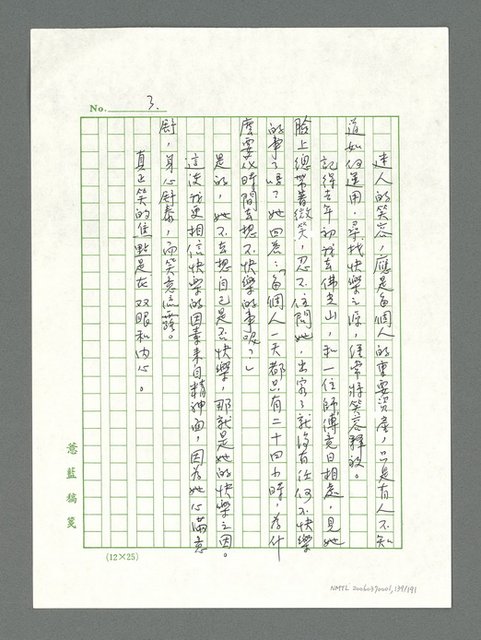 No. 3.
迷人的笑容，應是每個人的重要資產，只是有人不知
道如何運用．尋找快樂之源，經常將笑容釋放。
記得去年初我去佛光山，和一位師傅竟日相處，見她
臉上總帶着微笑，忍不住問她，出家了就沒有任何不快樂
的事了嗎？她回答：「每個人一天都只有二十四小時，為什
麼要花時間去想不快樂的事呢？」
是的，她不去想自己是否快樂，那就是她的快樂之因。
這使我更相信快樂的因素來自精神面，因為她心滿意
舒，身心舒泰，而笑意流露。
真正笑的焦點是在双眼和內心。
薏藍稿箋
(12×25)
NMTL 20060370001, 139/191